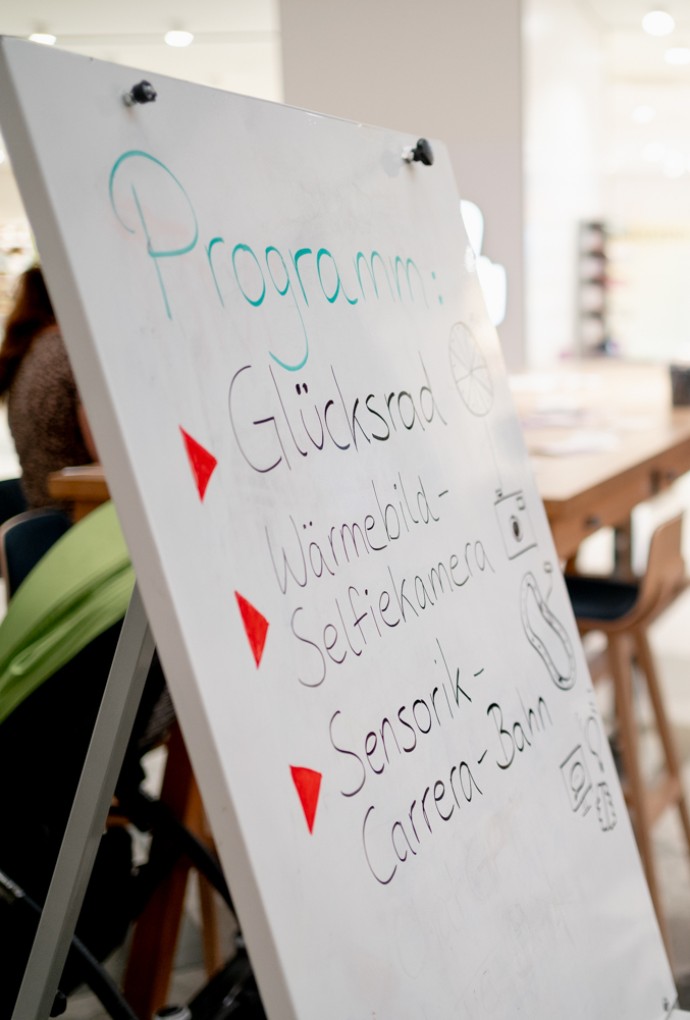 Programm:
Glücksrad
Wärmebild-
Selfiekamera
Sensorik-
Carrera-Bahn